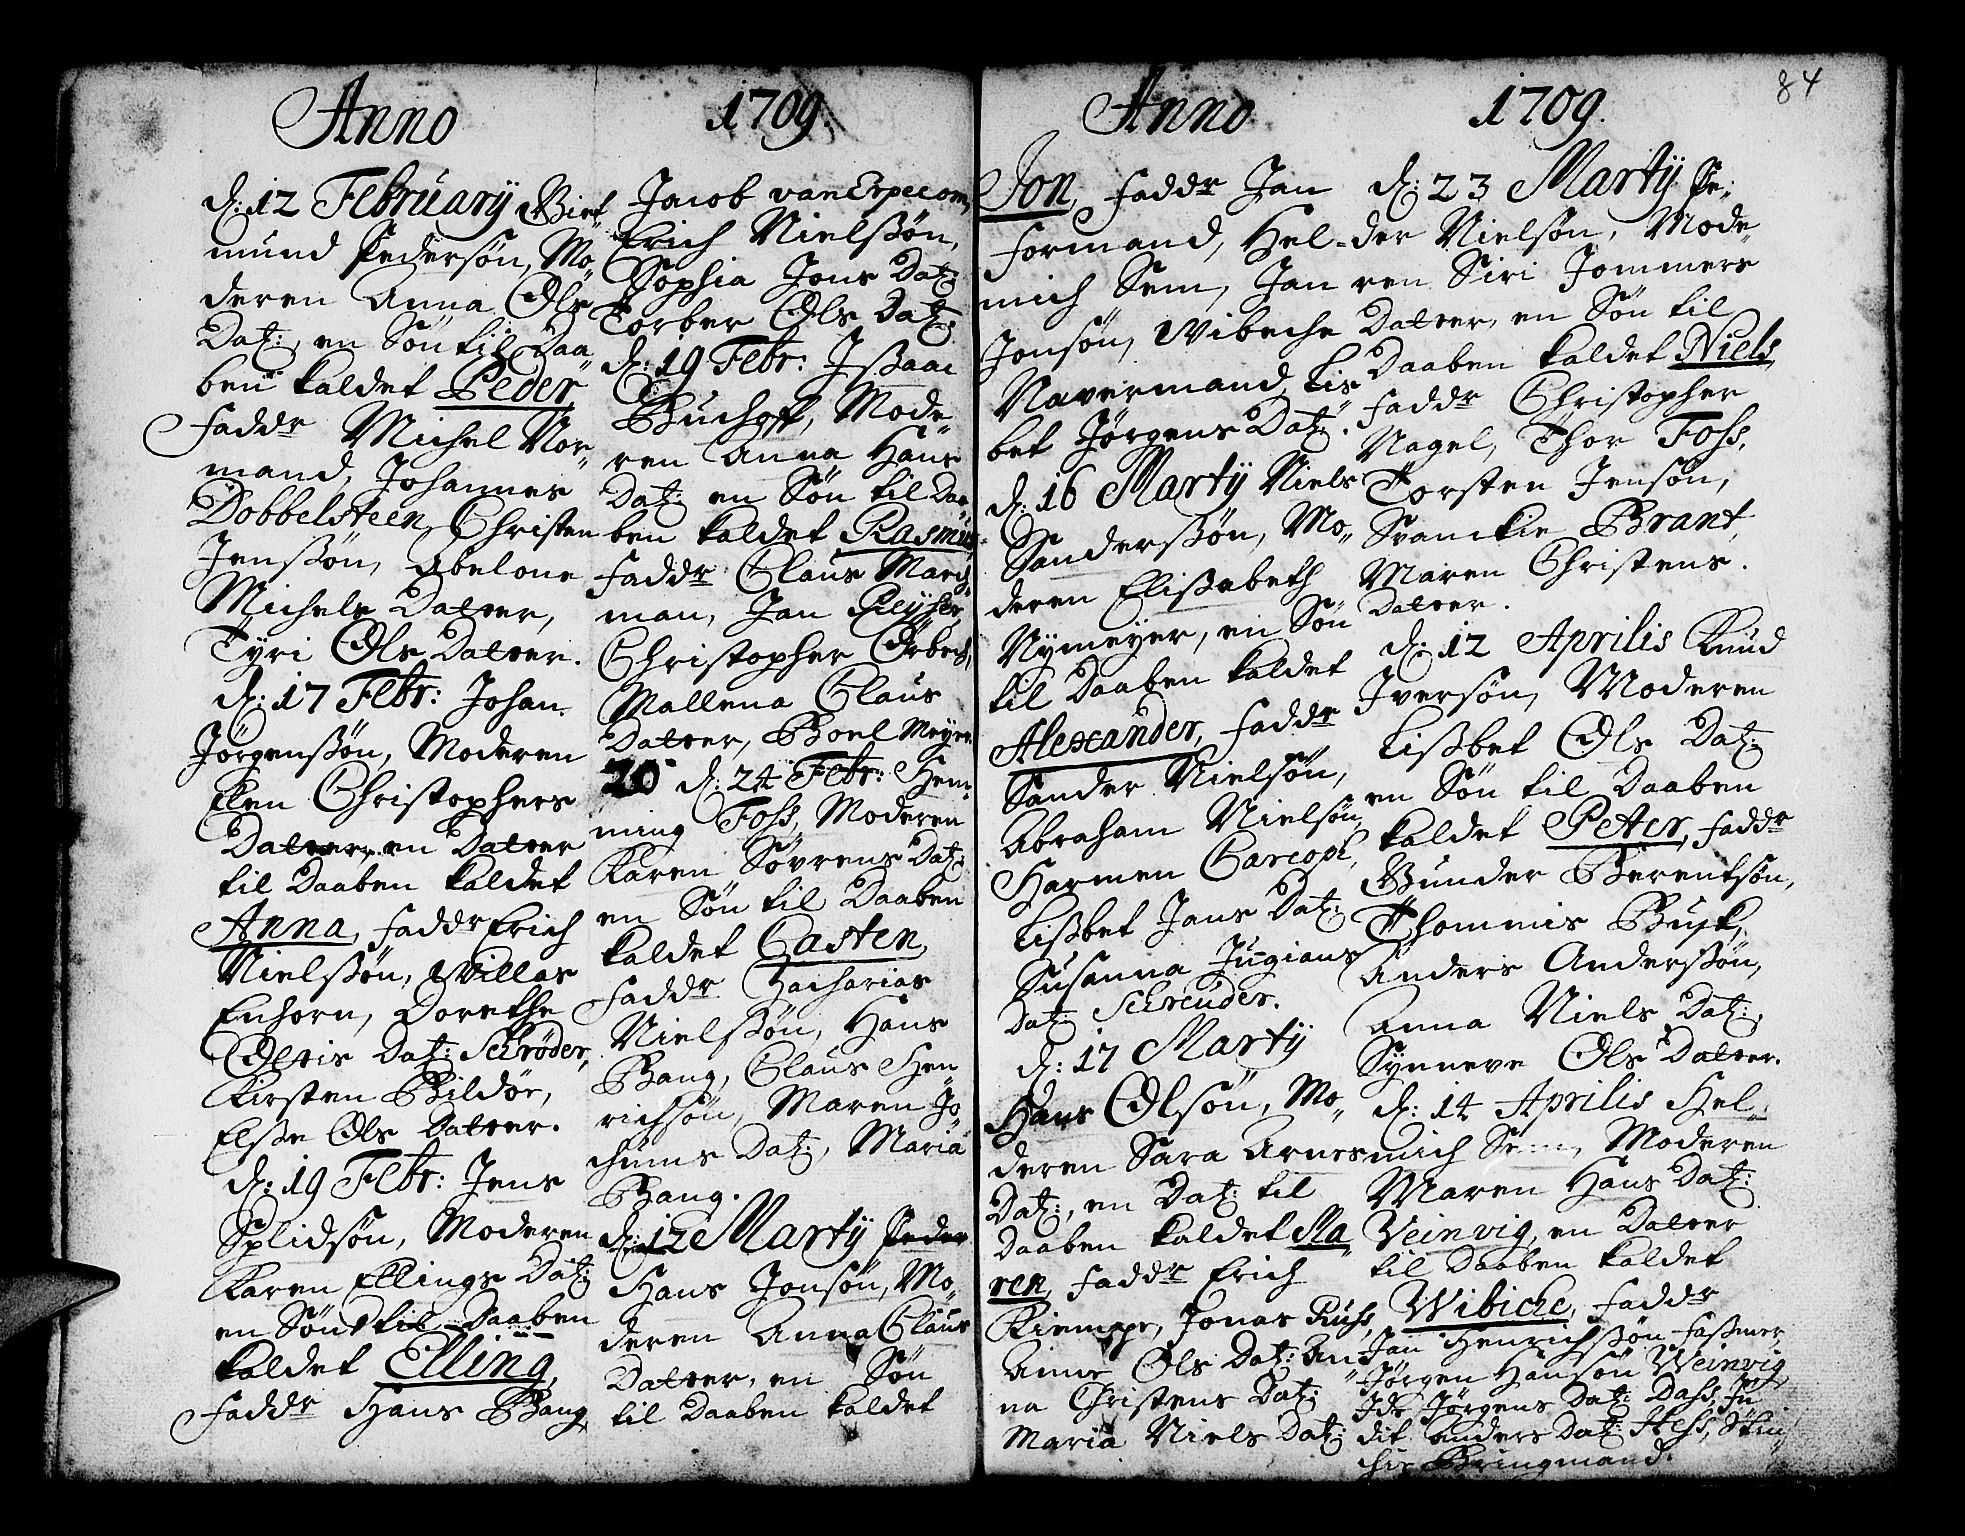 Anno 1709.
d: 12 Februarÿ Birt
mund Pedersøn, Mo„
deren Anna Ols
Dat:, en Søn til Daa„
ben kaldet Peder
Faddr Michel Nor„
mand, Johannes
Dobbelsteen, Christen
Jenssøn, Abelone
Michels Datter,
Tyri Ols Datter.
d: 17 Febr: Johan
Jørgenssøn, Moderen
Elen Christophers
Datter, en Datter
til Daaben kaldet
Anna, Faddr Erich
Nielssøn, Willas
Enhorn, Dorethe
Oltis Dat: Schrøder,
Kirsten Bildøe,
Elsse Ols Datter.
d: 19 Febr: Jens
Splidsøn, Moderen
Karen Ellings Dat:
en Søn til Daaben
kaldet Elling,
Faddr Hans Bang
Jacob van Erpecom,
Erich Nielssøn,
Sophia Jons Dat:
Torber Ols Dat:
d: 19 Febr: Issaac
Buchoff, Mode„
ren Anna Hans
Dat: en Søn til Daa„
ben kaldet Rasmus,
Faddr Claus March„
man, Jan Reyser,
Christopher Ørbech,
Mallena Claus
Datter, Boel Meyer
20 d: 24 Febr: Hem„
ming Foss, Moderen
Karen Søvrens Dat:
en Søn til Daaben
kaldet Casten,
Faddr Zacharias
Nielssøn, Hans
Bang, Claus Hen
richsøn, Maren Jo
chums Dat:, Maria
Bang.
d: 12 Martÿ Peder
Hans Jonsøn, Mo„
deren Anna Claus
Datter, en Søn
til Daaben kaldet
84
Anno 1709.
Jon, Faddr Jan
Formand, Hel„
mich Sem, Jan
Jonsøn, Wibeche
Navermand, Lis
bet Jørgens Dat:
d: 16 Martÿ Niels
Sanderssøn, Mo„
deren Elissabeth
Nymeyer, en Søn
til Daaben kaldet
Alexander, Faddr
Sander Nielsøn,
Abraham Nielsøn,
Harmen Carcopf,
Lissbet Jans Dat:
Susanna Jugians
Dat: Schreuder.
d: 17 Martÿ
Hans Olsøn, Mo„
deren Sara Arnes
Dat:, en Dat: til
Daaben kaldet Ma„
ren, Faddr Erich
Kiempe, Jonas Russ,
Anne Ols Dat: An„
na Christens Dat:
Maria Niels Dat:
d: 23 Martÿ Pe„
der Nielsøn, Mode„
ren Siri Jommers
Datter, en Søn til
Daaben kaldet Niels,
Faddr Christopher
Nagel, Thor Foss,
Torsten Jensøn,
Svanckie Brant,
Maren Christens
Datter.
d: 12 Aprilis Knud
Iversøn, Moderen
Lissbet Ols Dat:
en Søn til Daaben
kaldet Peter, Faddr
Gunder Berentsøn,
Thommis Busk,
Anders Anderssøn,
Anna Niels Dat:,
Synneve Ols Datter.
d: 14 Aprilis Hel„
mich Sem, Moderen
Maren Hans Dat:
Weinvig, en Datter
til Daaben kaldet
Wibiche, Faddr
Jan Henrichssøn Fassmer,
Jørgen Hansøn Weinvig,
Ide Jørgens Dat: Dass, Ju
dit Anders Dat: Hess, Stin„
chie Bringmand.